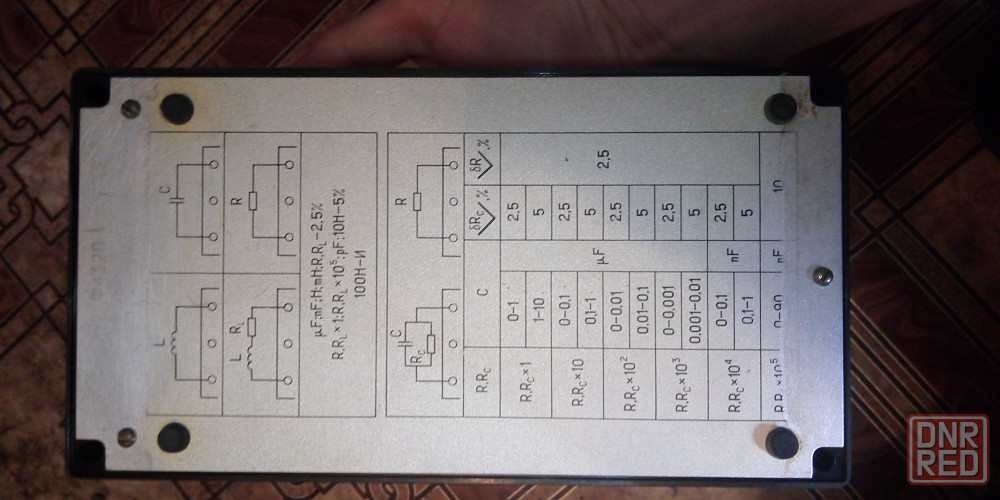 L C
L R_L R
μF;nF;H;mH;R,R_L–2,5%
R,R_L×1;R,R_L×10⁵;pF;10H–5%
100H–И
C R_C R
R,R_C C δR_C,% δR,%
R,R_C×1 0–1 μF 2,5 2,5
1–10 5
R,R_C×10 0–0,1 2,5
0,1–1 5
R,R_C×10² 0–0,01 2,5
0,01–0,1 5
R,R_C×10³ 0–0,001 2,5
0,001–0,01 5
R,R_C×10⁴ 0–0,1 nF 2,5
0,1–1 5
×10⁵ nF 10
DNR
RED